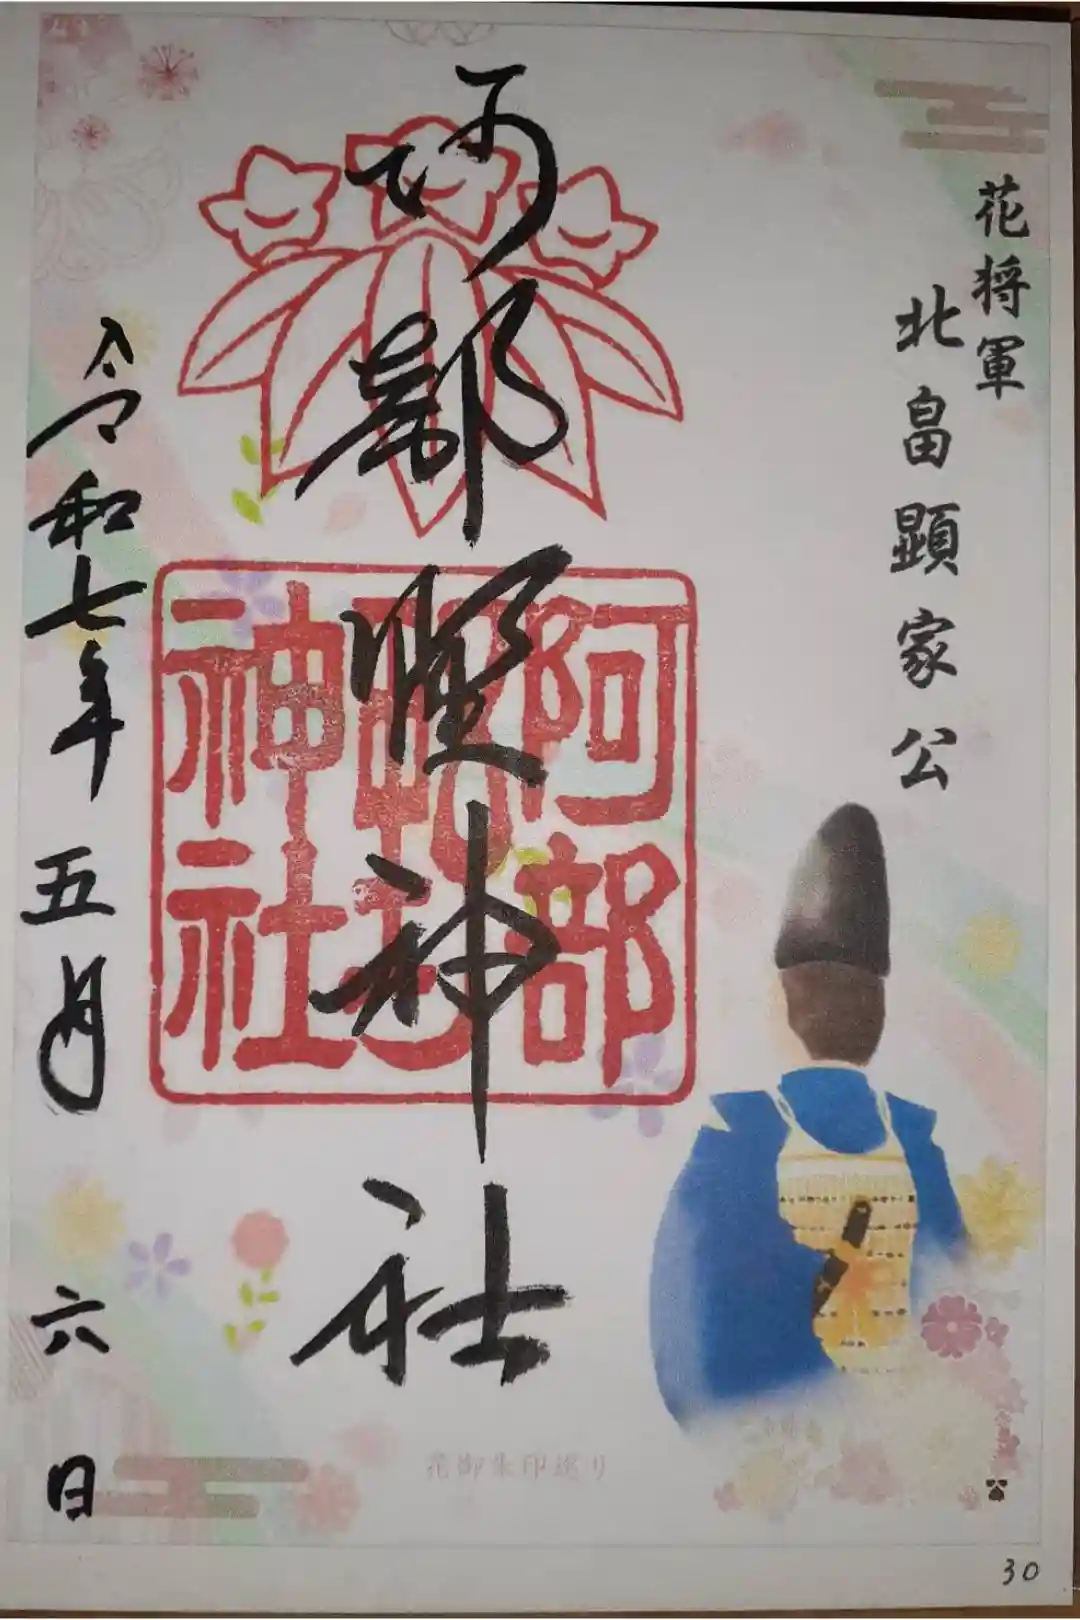 花将軍
北畠顕家公
阿部野神社
阿部
野
神社
令和七年五月六日
花御朱印巡り
30